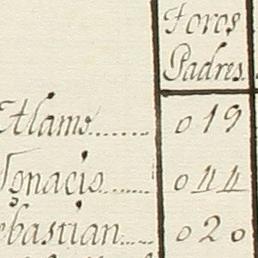 Foros
Padres
Alamo....... 019
Ignacio...... 044
ebastian..... 020